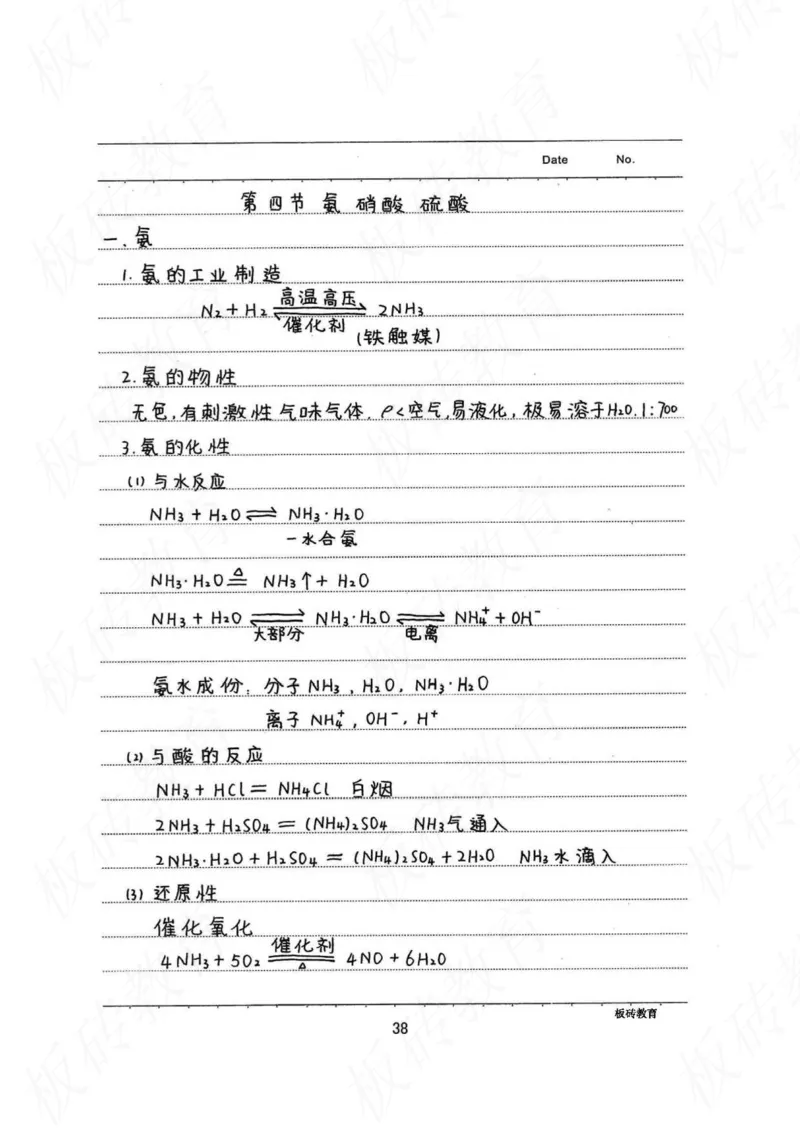 Date No.
第四节 氨 硝酸 硫酸
一、氨
1. 氨的工业制造
N₂ + H₂ ⇌ 2NH₃
高温高压
催化剂
(铁触媒)
2. 氨的物性
无色,有刺激性气味气体. ρ<空气,易液化,极易溶于H₂O. 1:700
3. 氨的化性
(1) 与水反应
NH₃ + H₂O ⇌ NH₃·H₂O
一水合氨
NH₃·H₂O ≜ NH₃↑ + H₂O
NH₃ + H₂O ⇌ NH₃·H₂O ⇌ NH₄⁺ + OH⁻
大部分 电离
氨水成份: 分子 NH₃, H₂O, NH₃·H₂O
离子 NH₄⁺, OH⁻, H⁺
(2) 与酸的反应
NH₃ + HCl = NH₄Cl 白烟
2NH₃ + H₂SO₄ = (NH₄)₂SO₄ NH₃气通入
2NH₃·H₂O + H₂SO₄ = (NH₄)₂SO₄ + 2H₂O NH₃水滴入
(3) 还原性
催化氧化
催化剂
4NH₃ + 5O₂ ═ 4NO + 6H₂O
△
板砖教育
38